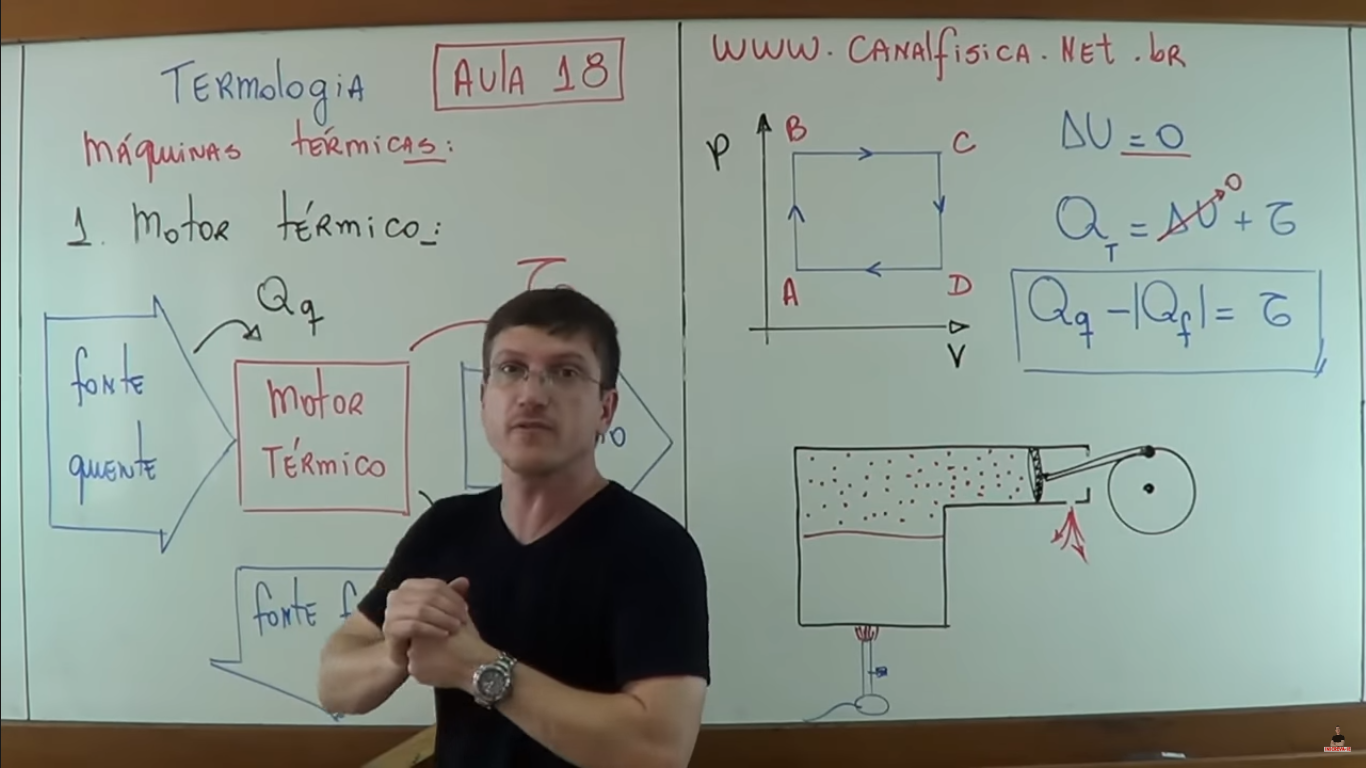 Termologia
Aula 18
Máquinas térmicas:
1. Motor térmico:
Qq
τ
fonte
quente
Motor
Térmico
fonte
www.canalfisica.net.br
P
B
C
A
D
V
ΔU = 0
Q_T = ΔU + τ
0
Qq - |Qf| = τ